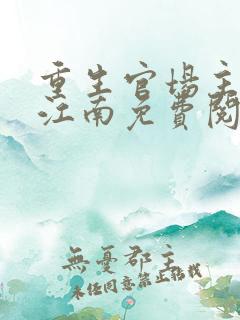 重生官場主
江南免費閱
無憂郡主
未经同意禁止转载